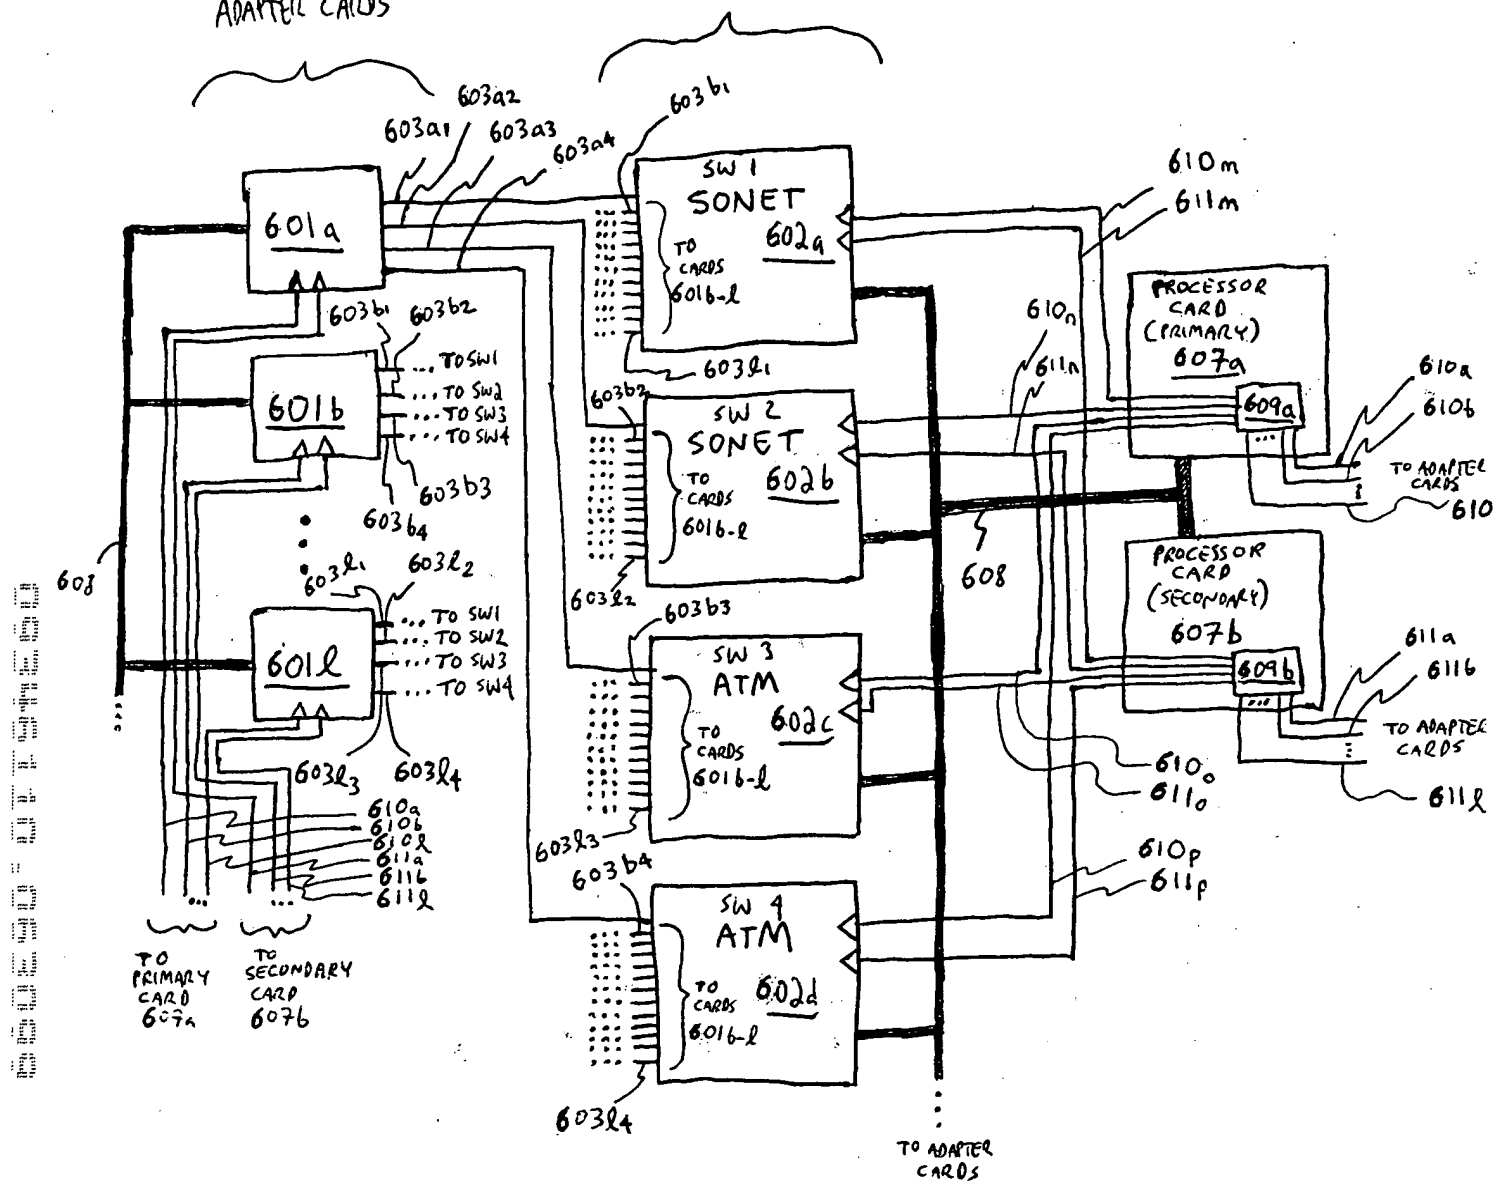 ADAPTER CARDS
603a1
603a2
603a3
603a4
601a
603b1
603b2
... TO SW1
... TO SW2
... TO SW3
... TO SW4
601b
603b3
603b4
608
603l1
603l2
... TO SW1
... TO SW2
... TO SW3
... TO SW4
601l
603l3
603l4
610a
610b
610l
611a
611b
611l
TO
PRIMARY
CARD
607a
TO
SECONDARY
CARD
607b
603b1
SW 1
SONET
602a
TO
CARDS
601b-l
603l1
603b2
SW 2
SONET
602b
TO
CARDS
601b-l
603l2
603b3
SW 3
ATM
602c
TO
CARDS
601b-l
603l3
603b4
SW 4
ATM
602d
TO
CARDS
601b-l
603l4
610m
611m
610n
611n
608
PROCESSOR
CARD
(PRIMARY)
607a
609a
610a
610b
TO ADAPTER
CARDS
610
PROCESSOR
CARD
(SECONDARY)
607b
609b
611a
611b
TO ADAPTER
CARDS
611l
610o
611o
610p
611p
TO ADAPTER
CARDS